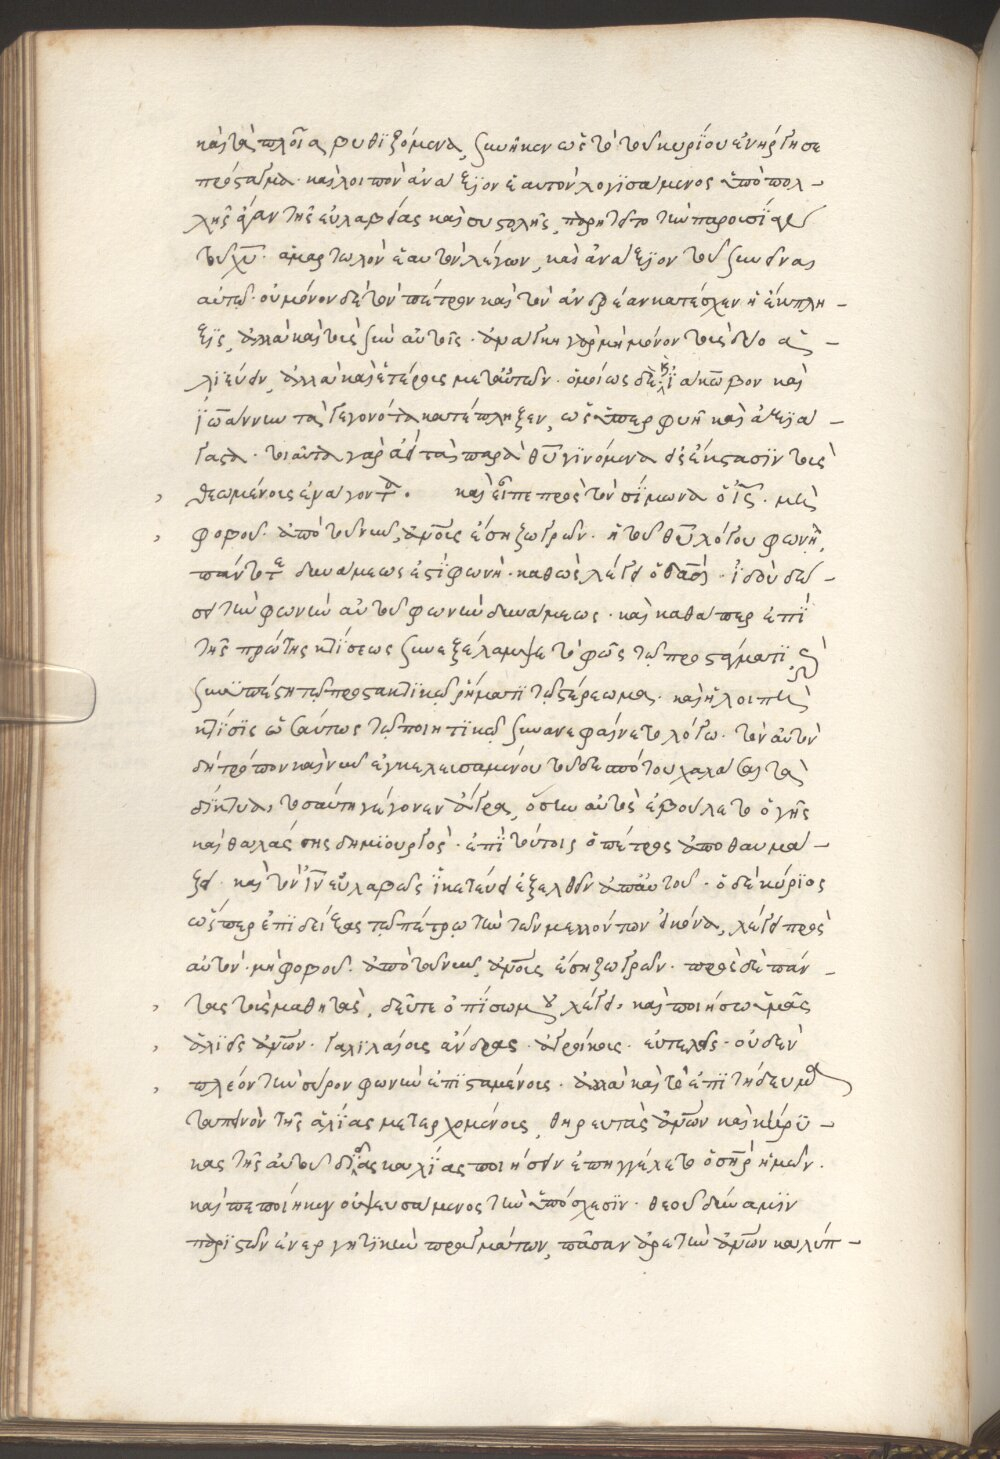 καὶ τὰ πλοῖα βυθιζόμενα, συνῆκεν ὡς τὸ τοῦ κυρίου ἐνήργησε
πρόσταγμα. καὶ λοιπὸν ἀνάξιον ἑαυτὸν λογισάμενος ὑπὸ πολ-
λῆς ἄγαν τῆς εὐλαβείας καὶ συστολῆς, παρητεῖτο τὴν παρουσίαν
τοῦ χῦ. ἁμαρτωλὸν ἑαυτὸν λέγων, καὶ ἀνάξιον τοῦ συνεῖναι
αὐτῷ. οὐ μόνον δὲ τὸν πέτρον καὶ τὸν ἀνδρέαν κατέσχεν ἡ ἔκπλη-
ξις, ἀλλὰ καὶ τοὺς σὺν αὐτοῖς. γὰρ μὴ μόνον τοὺς δύο ἁ-
λιεύειν, ἀλλὰ καὶ ἑτέρους μετ' αὐτῶν. ὁμοίως δὲ καὶ ἰάκωβον καὶ
ἰωάννην τὰ γεγονότα κατέπληξεν, ὡς ὑπερφυῆ καὶ ἀξιά-
γαστα. τοιαῦτα γὰρ ἀεὶ τὰ παρὰ θῦ γινόμενα εἰς ἔκστασιν τοὺς
θεωμένους ἐνάγοντα. καὶ εἶπε πρὸς τὸν σίμωνα ὁ ἰς. μὴ
φοβοῦ. ἀπὸ τοῦ νῦν, ἀνοῦς ἔσῃ ζωγρῶν. ἡ τοῦ θῦ λόγου φωνὴ,
πάντοτε δυνάμεώς ἐστι φωνή. καθὼς λέγει ὁ δαδ. ἰδοὺ δώ-
σει τὴν φωνὴν αὐτοῦ φωνὴν δυνάμεως. καὶ καθάπερ ἐπὶ
τῆς πρώτης κτίσεως συνεξέλαμψε τὸ φῶς τῷ προστάγματι, καὶ
συνυπέστη τῷ προστακτικῷ ῥήματι τὸ στερέωμα. καὶ ἡ λοιπὴ
κτίσις ὡσαύτως τῷ ποιητικῷ συνανεφαίνετο λόγῳ. τὸν αὐτὸν
δὴ τρόπον καὶ νῦν ἐγκελευσαμένου τοῦ δεσπότου χαλάσαι τὰ
δίκτυα, τοσαύτη γέγονεν ἄγρα, ὅσην αὐτὸς ἐβούλετο ὁ γῆς
καὶ θαλάσσης δημιουργός. ἐπὶ τούτοις ὁ πέτρος ἀποθαυμά-
ζει. καὶ τὸν ἰν εὐλαβῶς ἱκετεύει ἐξελθεῖν ἀπ' αὐτοῦ. ὁ δὲ κύριος
ὥσπερ ἐπιδείξας τῷ πέτρῳ τὴν τῶν μελλόντων εἰκόνα, λέγει πρὸς
αὐτόν. μὴ φοβοῦ. ἀπὸ τοῦ νῦν, ἀνοῦς ἔσῃ ζωγρῶν. πρὸς δὲ πάν-
τας τοὺς μαθητὰς, δεῦτε ὀπίσω μου λέγει, καὶ ποιήσω ὑμᾶς
ἁλιεῖς ἀνῶν. γαλιλαίους ἄνδρας. ἀγροίκους. εὐτελεῖς. οὐδὲν
πλέον τὴν σύρον φωνὴν ἐπισταμένους. ἀλλὰ καὶ τὸ ἐπιτήδευμα
ταπεινὸν τῆς ἁλείας μετερχομένους, θηρευτὰς ἀνῶν καὶ κήρυ-
κας τῆς αὐτοῦ διδασκαλίας ποιήσειν ἐπηγγέλλετο ὁ σηρ ἡμῶν.
καὶ πεποίηκεν οὐ ψευσάμενος τὴν ὑπόσχεσιν. θεοῦ δύναμιν
παριστῶν ἐνεργητικὴν πραγμάτων, πᾶσαν ἀρετὴν ἀνῶν καλύπ-